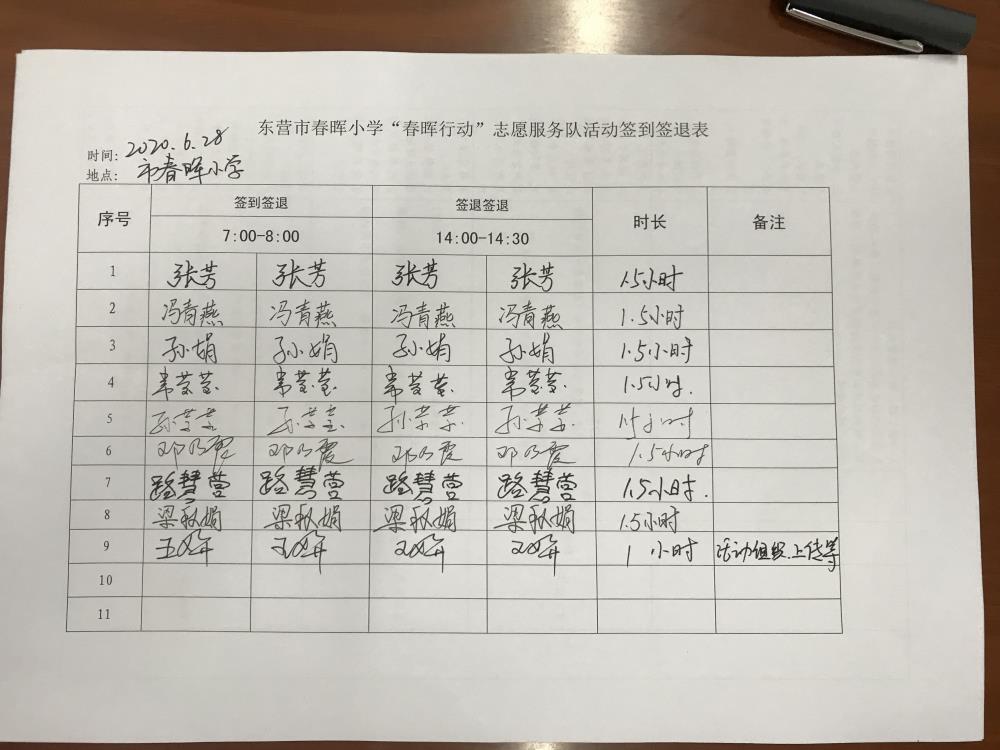 东营市春晖小学“春晖行动”志愿服务队活动签到签退表
时间：2020.6.28
地点：市春晖小学
序号 签到签退 签退签退 时长 备注
7:00-8:00 14:00-14:30
1 张芳 张芳 张芳 张芳 1.5小时
2 冯青燕 冯青燕 冯青燕 冯青燕 1.5小时
3 孙娟 孙娟 孙娟 孙娟 1.5小时
4 韦莹莹 韦莹莹 韦莹莹 韦莹莹 1.5小时.
5 1.5小时
6 邓乃霞 邓乃霞 邓乃霞 邓乃霞 1.5小时
7 路慧莹 路慧莹 路慧莹 路慧莹 1.5小时.
8 梁秋娟 梁秋娟 梁秋娟 梁秋娟 1.5小时
9 1 小时 活动组织.上传等
10
11